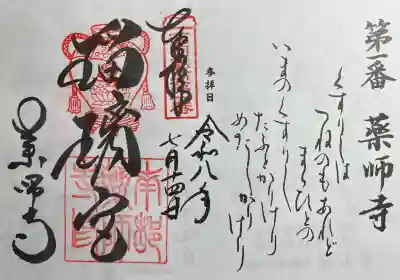 第一番 薬師寺
くすりしは
つねのもあれど
まらひとの
いまのくすりし
たふとかりけり
めだしかりけり
参拝日
令和八年
七月十四日
瑠璃宮
薬師寺
南都
薬師
寺印